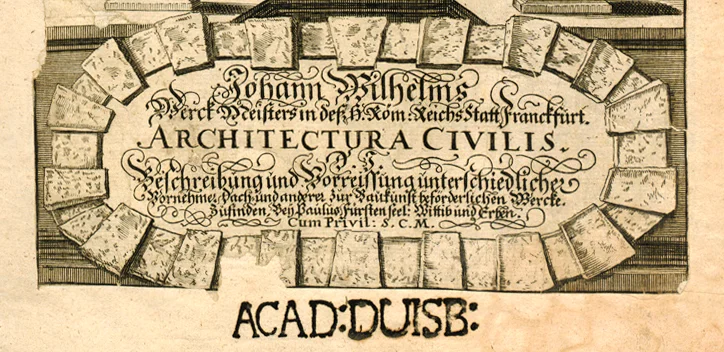 Johann Wilhelms
Werck Meisters in deß H: Röm: Reichs Statt Franckfurt.
ARCHITECTURA CIVILIS.
Beschreibung und Vorreissung unterschiedlicher
Vornehmer Dach und anderer zur Baukunst beförderlichen Wercke.
Zufinden Bey Paulus Fürsten seel: Wittib und Erben.
Cum Privil: S. C. M.
ACAD:DUISB: